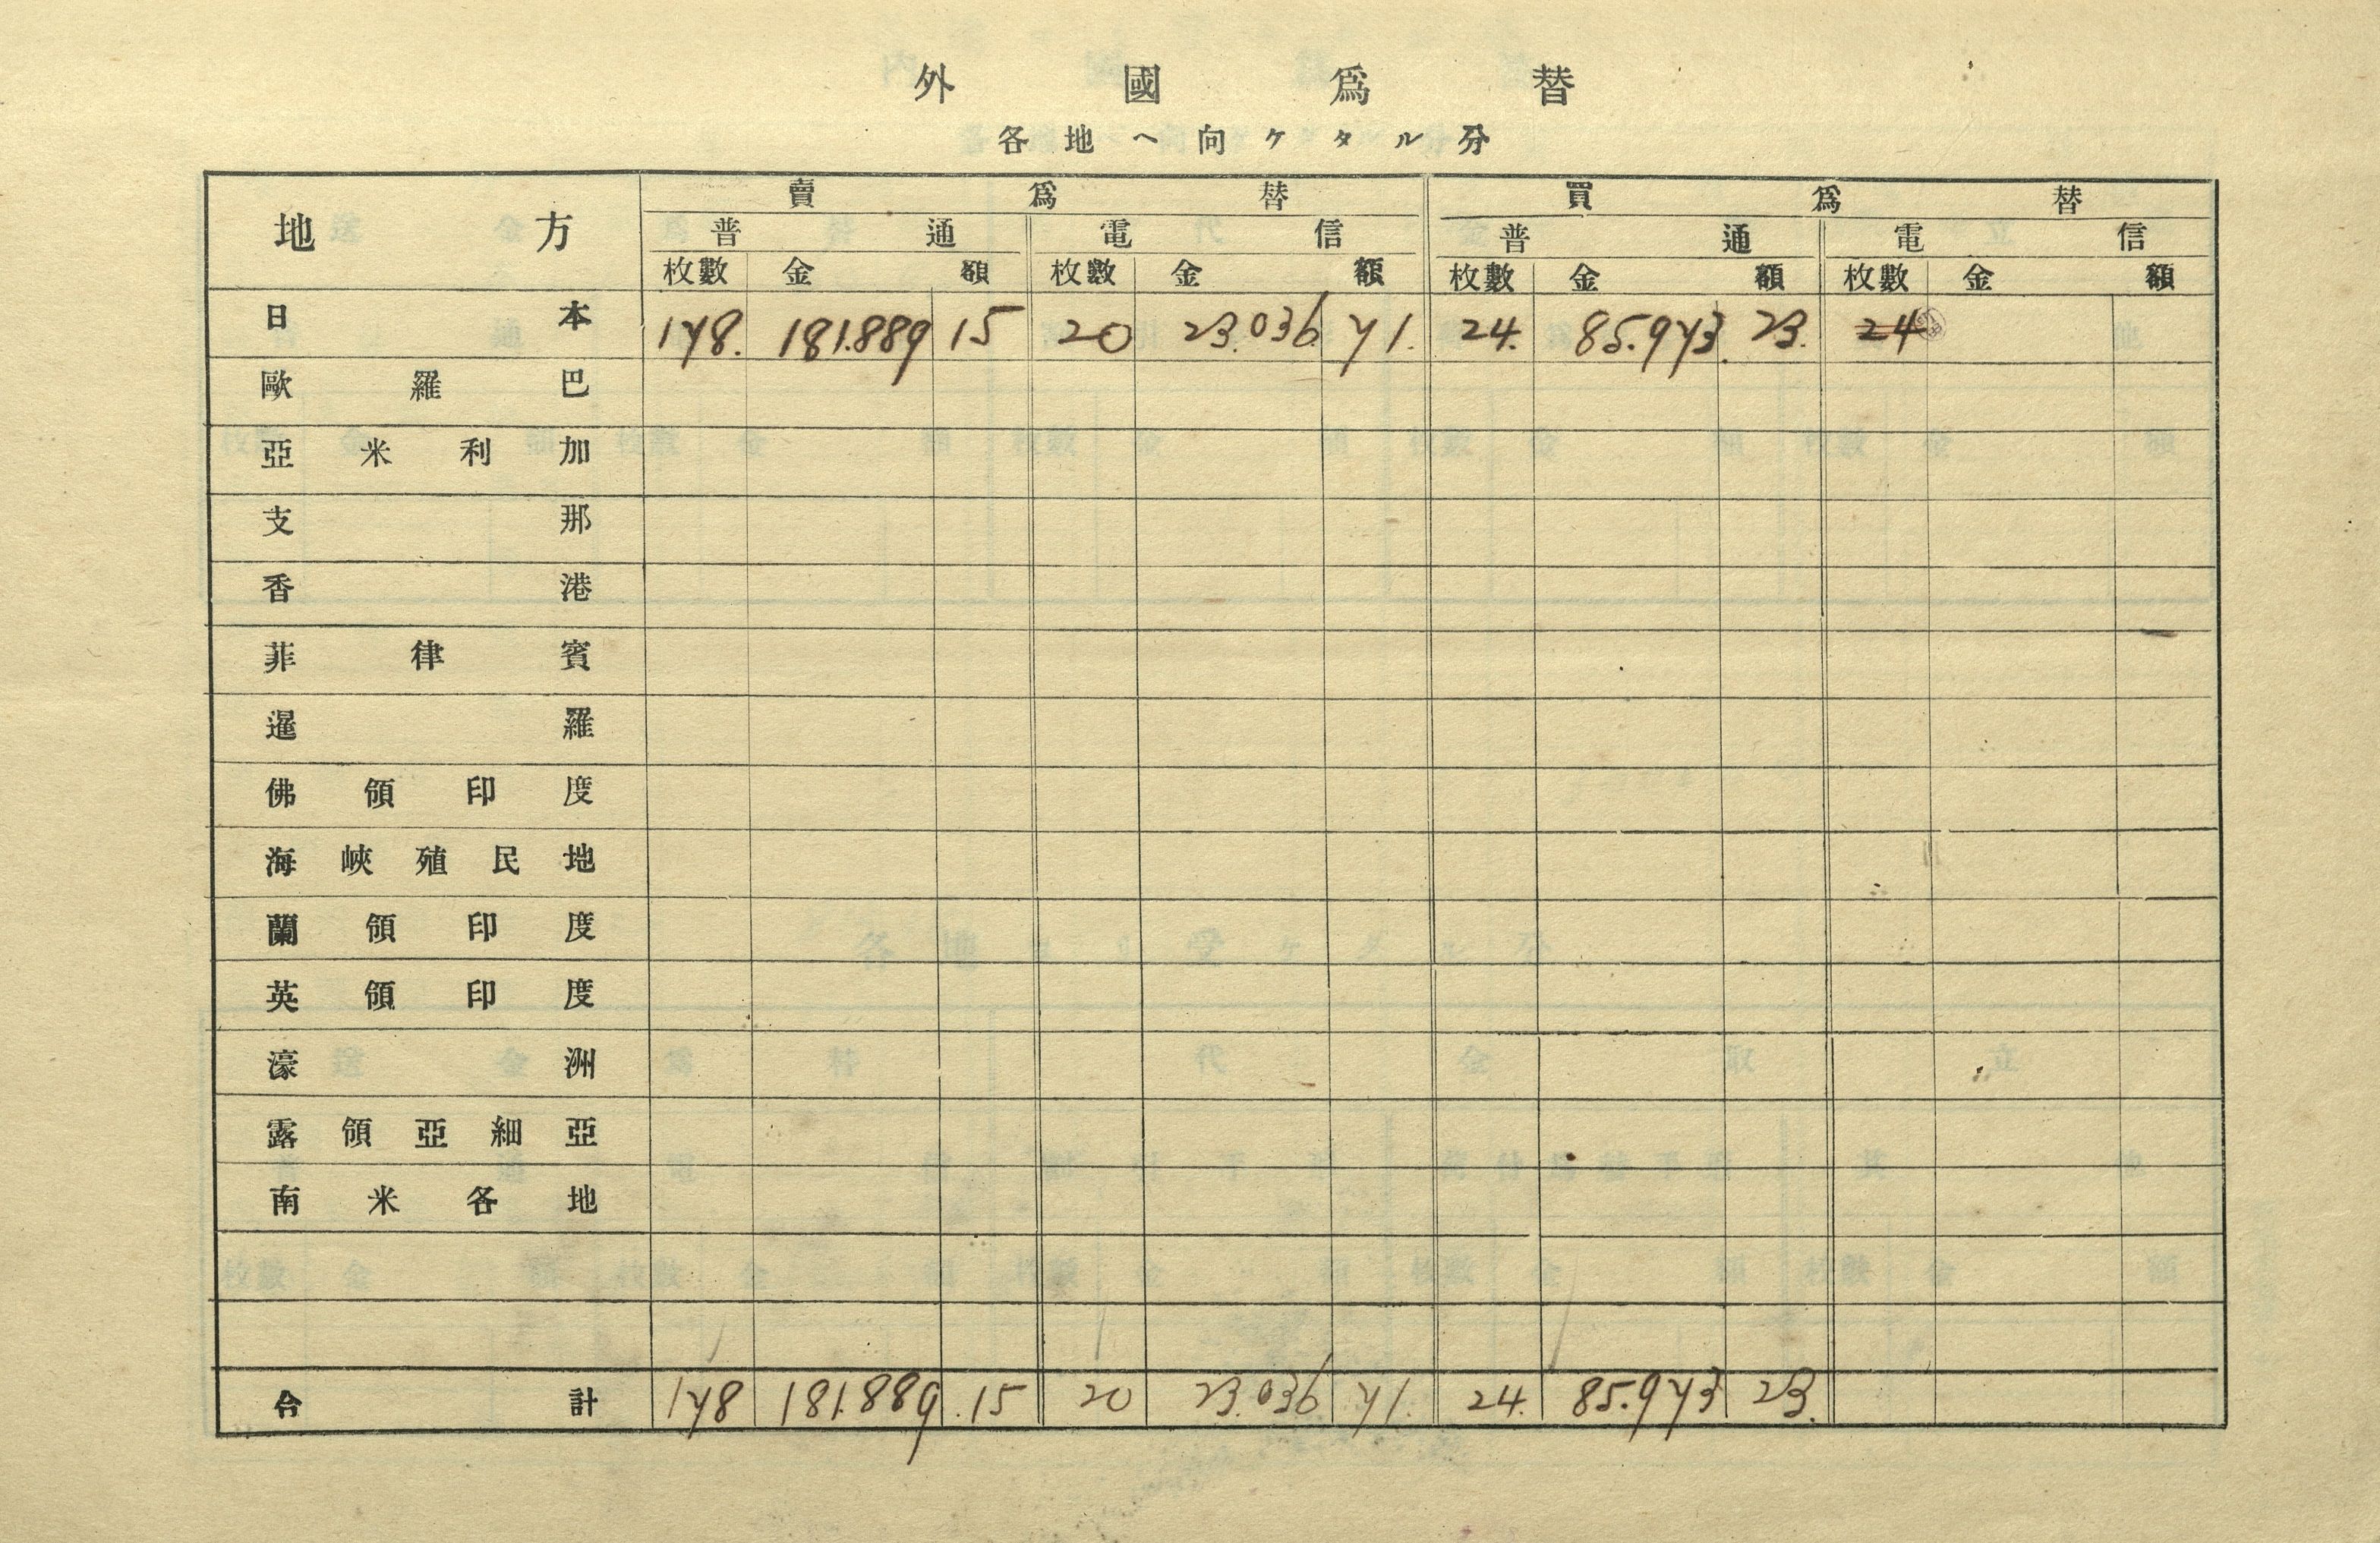 外國爲替
各地ヘ向ケタル分
地方 賣爲替 買爲替
普通 電信 普通 電信
枚數 金額 枚數 金額 枚數 金額 枚數 金額
日本 178. 181.889 15 20 23.036 71. 24. 85.973. 23. 24
歐羅巴
亞米利加
支那
香港
菲律賓
暹羅
佛領印度
海峽殖民地
蘭領印度
英領印度
濠洲
露領亞細亞
南米各地
合計 178 181.889 .15 20 23.036 71. 24. 85.973 23.